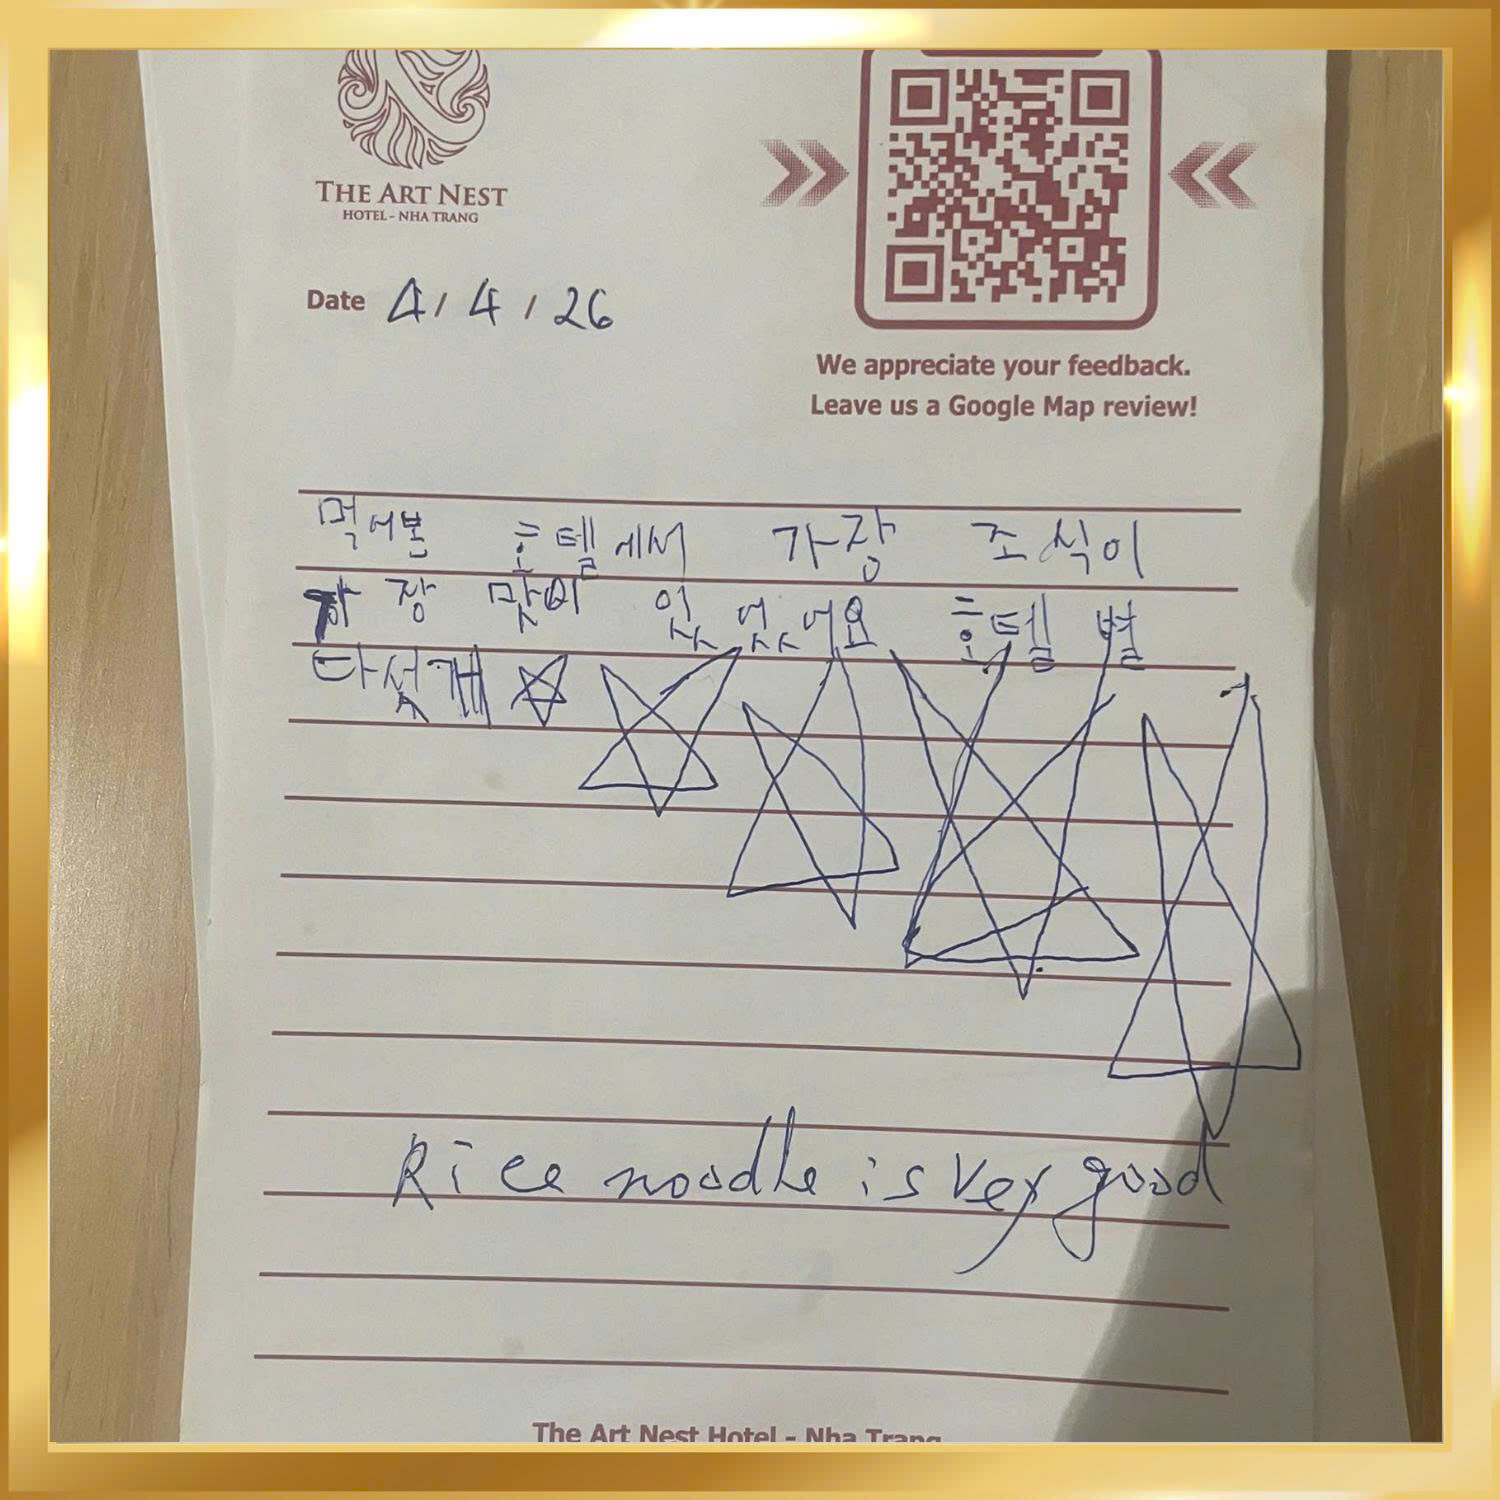 THE ART NEST
HOTEL - NHA TRANG
Date 4/4/26
We appreciate your feedback.
Leave us a Google Map review!
먹어본 호텔에서 가장 조식이
가장 맛이 있었어요 호텔 별
다섯개
Rice noodle is very good
The Art Nest Hotel - Nha Trang